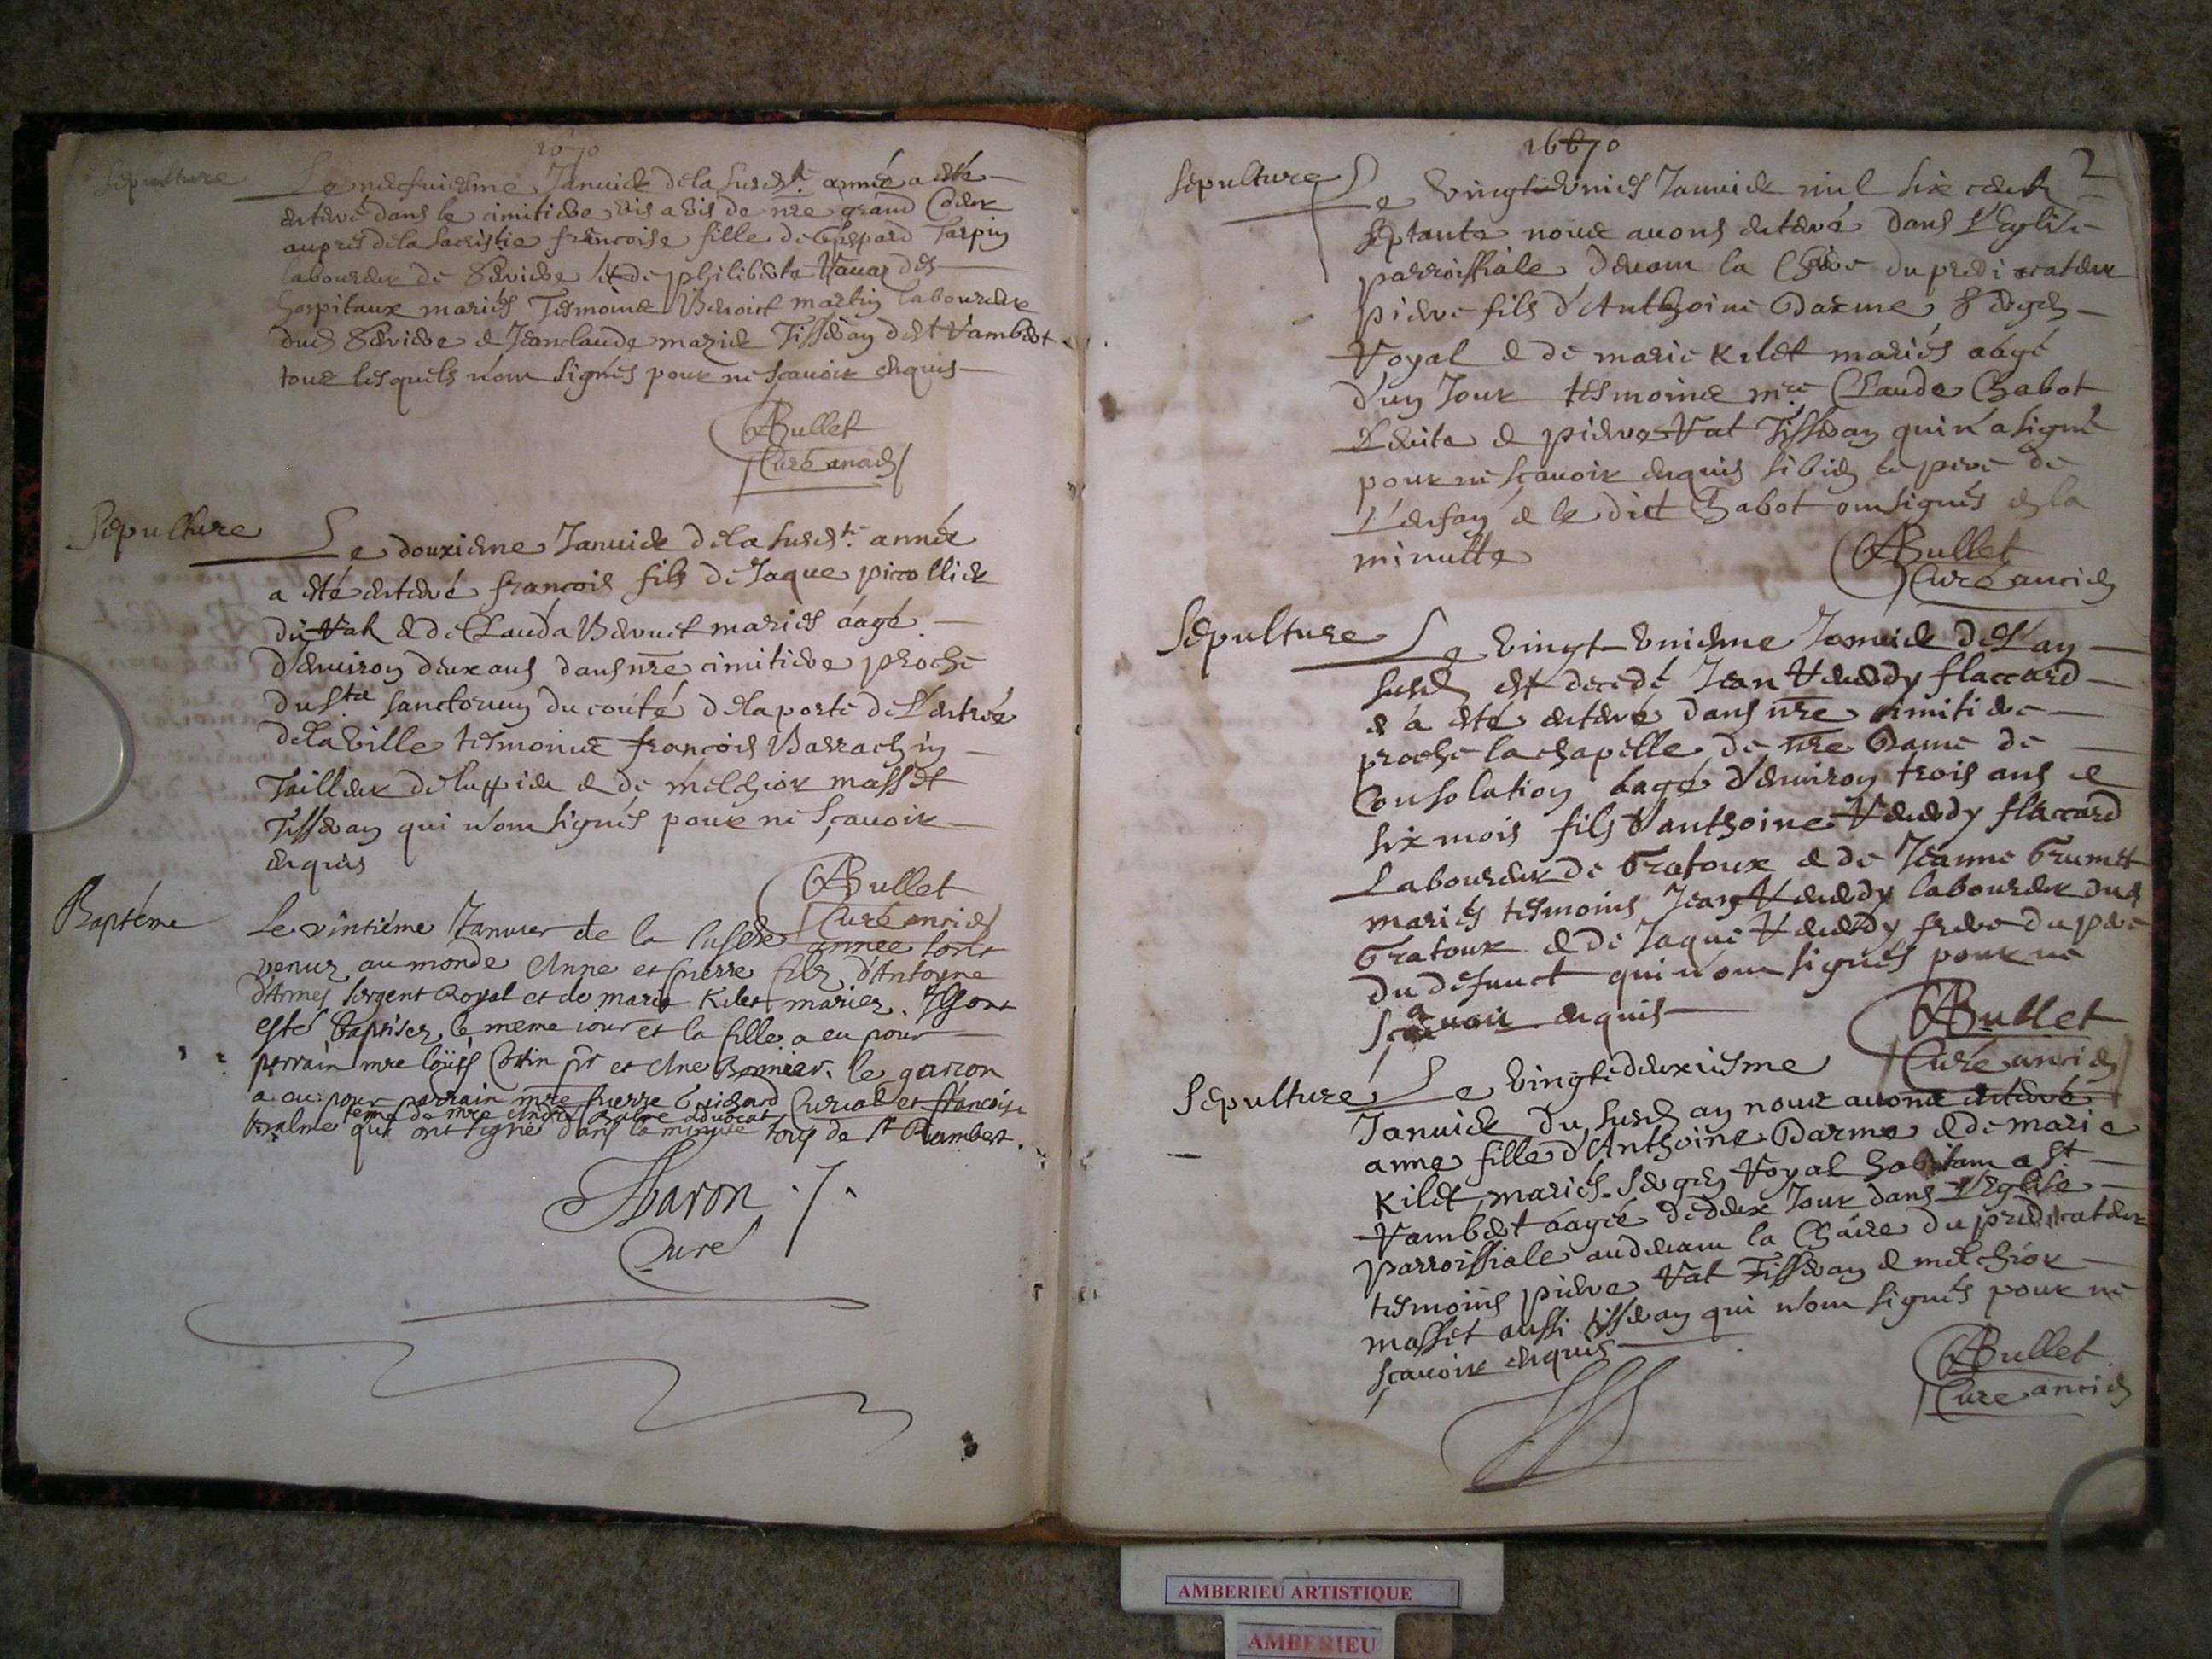 1670
Sepulture
Le neufuiesme Januier de la susdte. année a esté
enterré dans le cimitiere vis a vis de nre grand Coeur
aupres de la sacristie francoise fille de Gaspard Tarpin
laboureur de Serriere et de philiberte Rauaz des
hospitaux mariés Tesmoins Benoict martin laboureur
dud Serriere & Jean claude mazier Tisseran de st Rambert
tous lesquels n'ont signés pour ne scauoir enquis
ABullet
Curé ancien
Sepulture
Le douxieme Januier de la susdte. année
a été enterré francois fils de Jaque picollier
du Vat & de Clauda Bernuet mariés áagé
d'enuiron deux ans dans nre cimitiere proche
du sta sanctorum du couté de la porte de l'entrée
de la ville tesmoins françois Barrachin
Tailleur de & de melchior masset
Tisseran qui n'ont signés pour ne sçauoir
enquis
ABullet
Curé ancien
Baptéme
Le vintiéme Januier de la susdte année sont
venus au monde Anne et pierre filz d'Antoyne
d'Armes sergent Royal et de marie Kilet mariez. Ils ont
esté baptisez le meme iour et la fille a eu pour
perrain mre loüis Cottin pr et Ane Bonnier. le garcon
a eu pour parrain mre pierre Guichard Curial et françoise
feme de mre André balme aduocat
tralme qui ont signé dans la minute tous de st Rambert.
Baron
Curé
1670
2
Sepulture
Le vingt vnies Januier mil six cents
septante nous auons enterré dans l'Eglise
parroissiale deuant la Chaire du predicateur
pierre fils d'Anthoine Darme sergen
Royal & de marie Kilet mariés aágé
d'un Jour tesmoins mre. Claude Chabot
& pierre Vat Tisseran qui n'a signé
pour ne sçauoir enquis si bien le pere de
L'enfan & le dict Chabot ont signés en la
minutte
ABullet
Curé ancien
Sepulture
Le vingt-vniesme Januier de L'an
susd est decedé Jean Reueddy flaccard
& a été enterré dans nre cimitiere
proche la chapelle de nre Dame de
Consolation áagé d'enuiron trois ans &
six mois fils d'anthoine Reueddy flaccard
Laboureur de Gratoux & de Jeanne Grumet
mariés tesmoins Jean Reueddy laboureur dud
Gratoux & de Jaque Reueddy frere du pere
du defunct qui n'ont signés pour ne
sçauoir enquis
ABullet
Curé ancien
Sepulture
Le vingtedeuxiesme
Januier du susd an nous auons enterré
anne fille d'Anthoine Darme & de marie
Kilet mariés sergen Royal habitant a St
Rambert áagée de deux Jour dans l'Eglise
parroissiale audeuant la Chaire du predicateur
tesmoins pierre Vat Tisseran & melchior
masset aussi tisseran qui n'ont signés pour ne
sçauoir enquis
ABullet
Curé ancien
AMBERIEU ARTISTIQUE
AMBERIEU